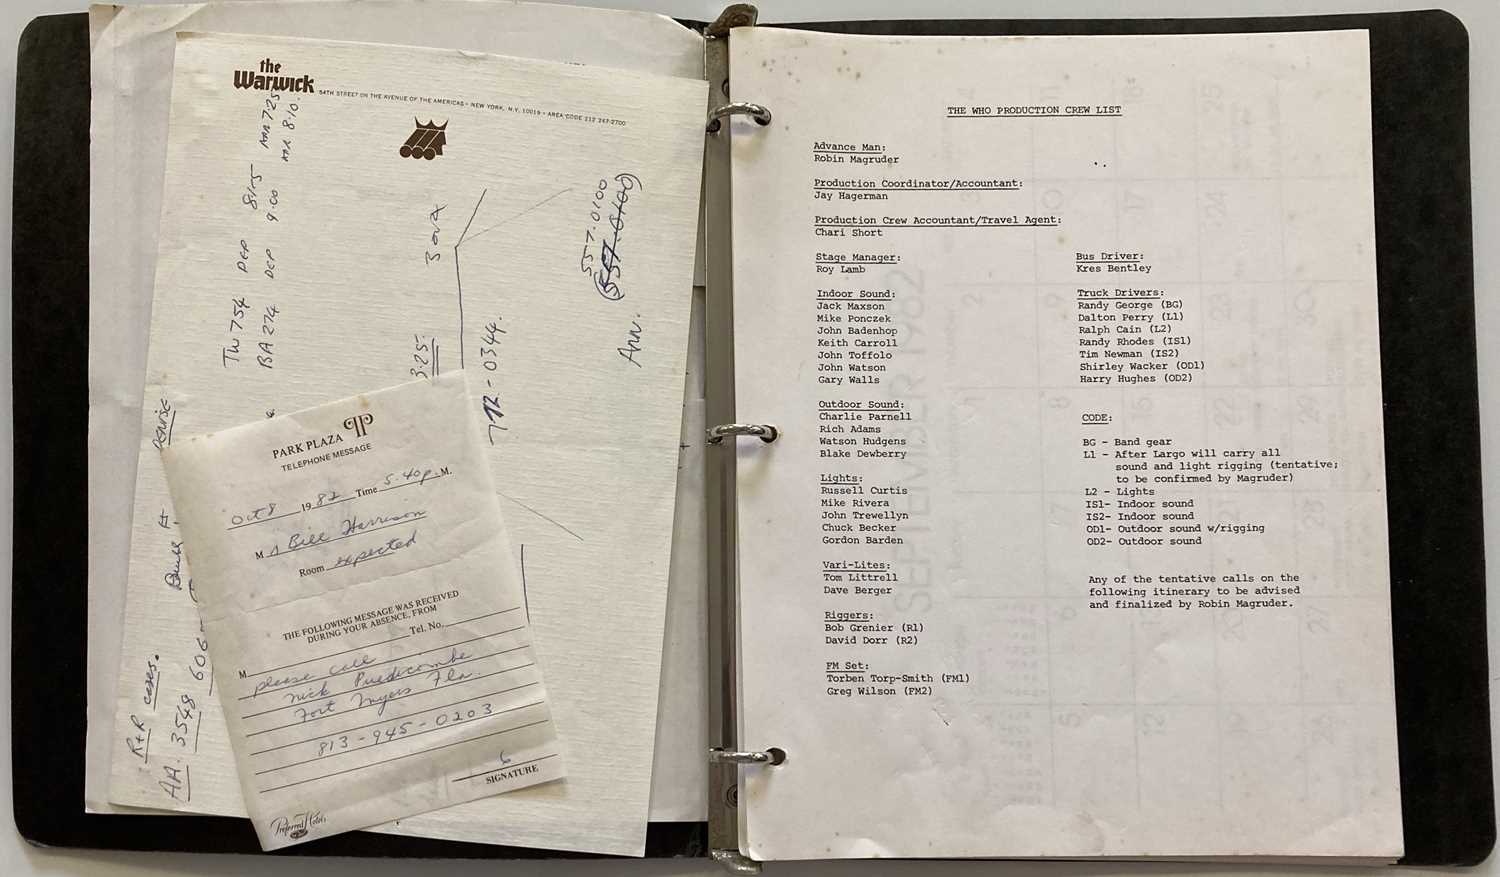 the
Warwick
54TH STREET ON THE AVENUE OF THE AMERICAS • NEW YORK, N.Y. 10019 • AREA CODE 212 247-2700
TW 754 DEP 8:15 ARR 7.25
BA 274 DEP 9.00 ARR 8.10.
3.25.
772-0344.
557.0100
(557.0100)
Ann.
R+R cases.
AA. 3548 606
PARK PLAZA
TELEPHONE MESSAGE
Oct 8 1982 Time 5.40p.M.
M s Bill Harrison
Room expected
THE FOLLOWING MESSAGE WAS RECEIVED
DURING YOUR ABSENCE, FROM
Tel. No.
M please call
Nick
Fort Myers Fla.
813-945-0203
SIGNATURE
Preferred Hotels
THE WHO PRODUCTION CREW LIST
Advance Man:
Robin Magruder
Production Coordinator/Accountant:
Jay Hagerman
Production Crew Accountant/Travel Agent:
Chari Short
Stage Manager:
Roy Lamb
Indoor Sound:
Jack Maxson
Mike Ponczek
John Badenhop
Keith Carroll
John Toffolo
John Watson
Gary Walls
Outdoor Sound:
Charlie Parnell
Rich Adams
Watson Hudgens
Blake Dewberry
Lights:
Russell Curtis
Mike Rivera
John Trewellyn
Chuck Becker
Gordon Barden
Vari-Lites:
Tom Littrell
Dave Berger
Riggers:
Bob Grenier (R1)
David Dorr (R2)
FM Set:
Torben Torp-Smith (FM1)
Greg Wilson (FM2)
Bus Driver:
Kres Bentley
Truck Drivers:
Randy George (BG)
Dalton Perry (L1)
Ralph Cain (L2)
Randy Rhodes (IS1)
Tim Newman (IS2)
Shirley Wacker (OD1)
Harry Hughes (OD2)
CODE:
BG - Band gear
L1 - After Largo will carry all
sound and light rigging (tentative;
to be confirmed by Magruder)
L2 - Lights
IS1- Indoor sound
IS2- Indoor sound
OD1- Outdoor sound w/rigging
OD2- Outdoor sound
Any of the tentative calls on the
following itinerary to be advised
and finalized by Robin Magruder.